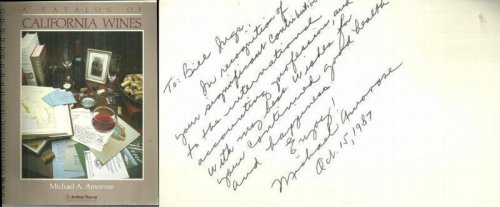 A CATALOG OF
CALIFORNIA WINES
Michael A. Amorose
Arthur Young
To: Bill
In recognition of
your significant contribution
to the international
accounting profession, and
with my best wishes for
your continued good health
and happiness.
Enjoy!
Michael Amorose
Oct. 15, 1987